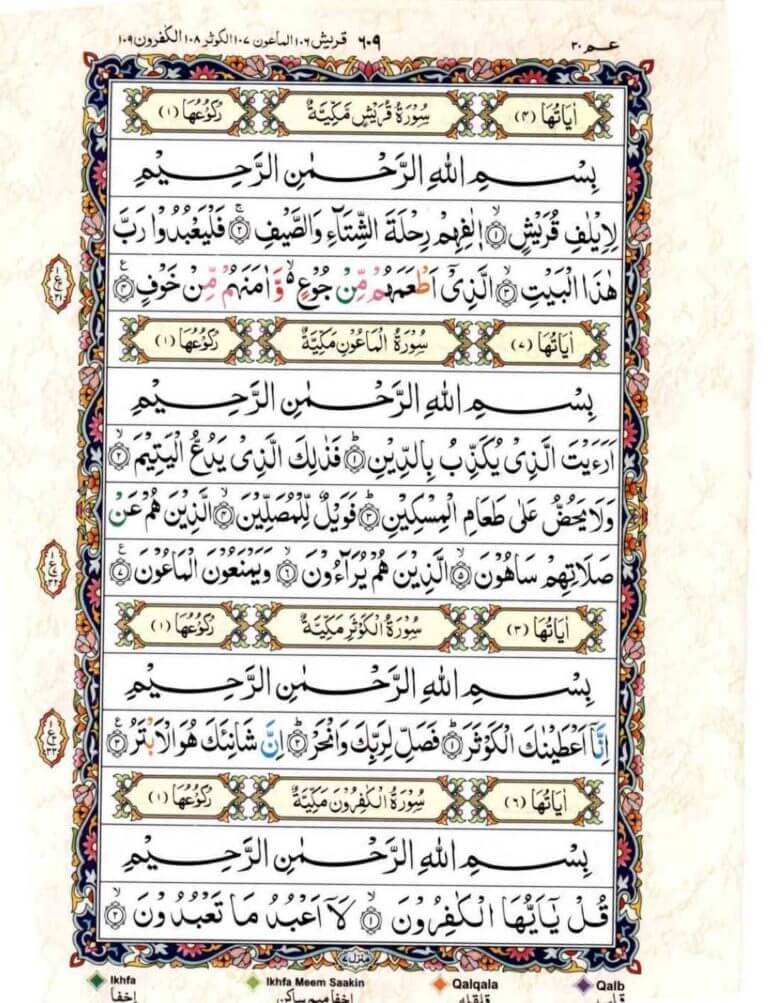 عـمـ ٣٠ ٦٠٩ قریش ١٠٦ الماعون ١٠٧ الکوثر ١٠٨ الکفرون ١٠٩
اٰیَاتُهَا (٤) سُوْرَةُ قُرَیْشٍ مَّکِّیَّةٌ رُکُوْعُهَا (١)
بِسْمِ اللّٰهِ الرَّحْمٰنِ الرَّحِیْمِ
لِاِیْلٰفِ قُرَیْشٍۙ۝١ اٖلٰفِهِمْ رِحْلَةَ الشِّتَآءِ وَالصَّیْفِۚ۝٢ فَلْیَعْبُدُوْا رَبَّ
هٰذَا الْبَیْتِۙ۝٣ الَّذِیْۤ اَطْعَمَهُمْ مِّنْ جُوْعٍ۬ۙ وَّاٰمَنَهُمْ مِّنْ خَوْفٍ۝٤
اٰیَاتُهَا (٧) سُوْرَةُ الْمَاعُوْنِ مَکِّیَّةٌ رُکُوْعُهَا (١)
بِسْمِ اللّٰهِ الرَّحْمٰنِ الرَّحِیْمِ
اَرَءَیْتَ الَّذِیْ یُکَذِّبُ بِالدِّیْنِؕ۝١ فَذٰلِكَ الَّذِیْ یَدُعُّ الْیَتِیْمَۙ۝٢
وَلَا یَحُضُّ عَلٰی طَعَامِ الْمِسْکِیْنِؕ۝٣ فَوَیْلٌ لِّلْمُصَلِّیْنَۙ۝٤ الَّذِیْنَ هُمْ عَنْ
صَلَاتِهِمْ سَاهُوْنَۙ۝٥ الَّذِیْنَ هُمْ یُرَآءُوْنَۙ۝٦ وَیَمْنَعُوْنَ الْمَاعُوْنَ۝٧
اٰیَاتُهَا (٣) سُوْرَةُ الْکَوْثَرِ مَکِّیَّةٌ رُکُوْعُهَا (١)
بِسْمِ اللّٰهِ الرَّحْمٰنِ الرَّحِیْمِ
اِنَّاۤ اَعْطَیْنٰكَ الْکَوْثَرَؕ۝١ فَصَلِّ لِرَبِّكَ وَانْحَرْؕ۝٢ اِنَّ شَانِئَكَ هُوَ الْاَبْتَرُ۝٣
اٰیَاتُهَا (٦) سُوْرَةُ الْکٰفِرُوْنَ مَکِّیَّةٌ رُکُوْعُهَا (١)
بِسْمِ اللّٰهِ الرَّحْمٰنِ الرَّحِیْمِ
قُلْ یٰۤاَیُّهَا الْکٰفِرُوْنَۙ۝١ لَاۤ اَعْبُدُ مَا تَعْبُدُوْنَۙ۝٢
منزل ٧
Ikhfa Ikhfa Meem Saakin Qalqala Qalb
اخفا اخفا میم ساکن قلقله